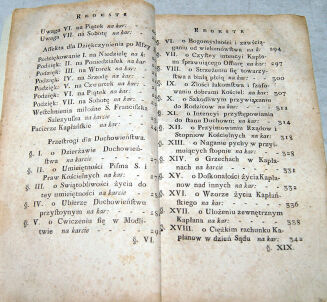 REGESTR
Uwaga VI. na Piątek na kar:
Uwaga VII. na Sobotę na kar:
Affekta dla Dziękczynienia po Mszy
Podziękowanie I. na Niedzielę na k:
Podzięk: II. na Poniedziałek na kar:
Podzięk: III. na Wtorek na kar:
Podzięk: IV. na Szrodę na kar:
Podzięk: V. na Czwartek na kar:
Podzięk: VI. na Piątek na kar:
Podzięk: VII. na Sobotę na kar:
Westchnienia miłosne S. Franciszka
na kar:
Pacierze Kapłańskie
Przestrogi dla Duchowieństwa.
§. I. o Dzierżawie Duchowieństwa na karcie
§. II. o Umiejętności Pisma S. i
Praw Kościelnych na kar:
§. III. o Swiątobliwości życia do
tey umiejętności na kar:
§. IV. o Ubierze Duchowieństwu
przystoynym na kar:
§. V. o Cwiczeniu się w Modli-
twie na karcie
§. VI.
REGESTR
§. VI. o Bogomyslności i zawścią-
gniu od wielomówstwa na k: 294
§. VII. o Czystey intencyi Kapła-
na sprawuiącego Offiarę na kar: 297
§. VIII. o Strzeżeniu się towarzy-
stwa z białą płcią na kar: 300
§. IX. o Złości łakomstwa i szafo-
waniu dobrami Kościel: na kar: 304
§. X. o Szkodliwym przywiązaniu
do Rodziców na kar:
§. XI. o Intencyi przystępowania
do Stanu Duchown: na kar:
§. XII. o Przyimowaniu Razdów i
stopniow Kościelnych na kar:
§. XIII. o Naganie pychy w przyi-
muiących stopnie na kar: 328
§. XIV. o Grzechach w Kapła-
nach na karcie 331
§. XV. o Doskonałości życia Kapła-
now nad innych na kar: 332
§. XVI. o Wzorze życia Kapłań-
skiego na kar: 336
§. XVII. o Ułożeniu zewnętrznym
Kapłana na kar: 339
§. XVIII. o Ciężkim rachunku Ka-
płanow w dzień Sądu na kar: 342
§. XIX.